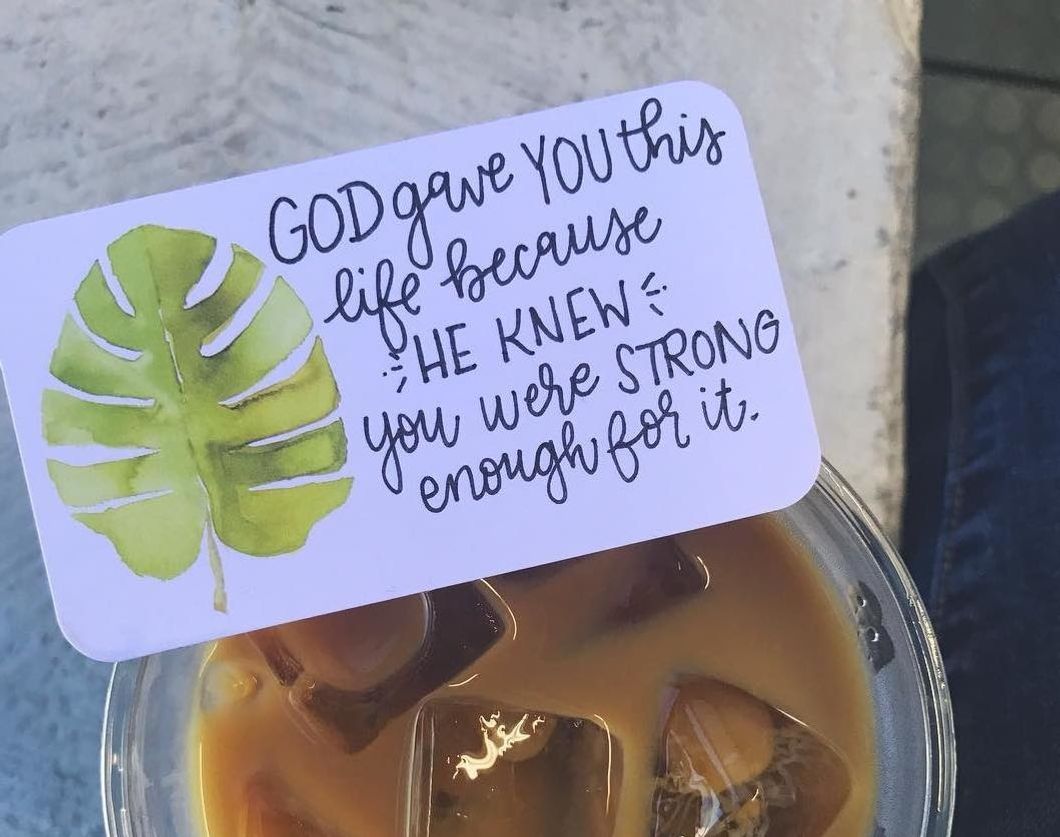 GOD gave YOU this
life because
HE KNEW
you were STRONG
enough for it.